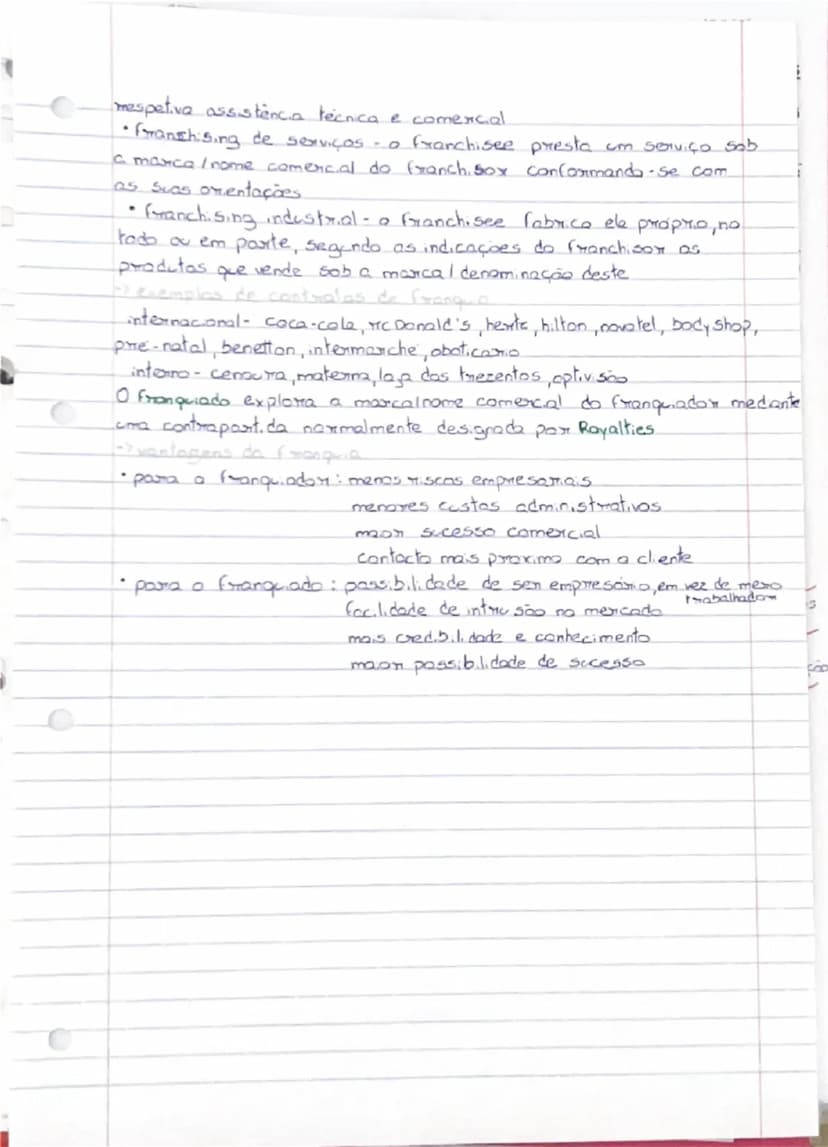 respetiva assistência técnica e comercial
• franchising de serviços - o franchisee presta um serviço sob
a marca/nome comercial do franchisor conformando-se com
as suas orientações
• franchising industrial - o franchisee fabrica ele próprio, no
todo ou em parte, segundo as indicações do franchisor os
produtos que vende sob a marca/denominação deste
-> exemplos de contratos de franquia
internacional - coca-cola, mcDonald's, hertz, hilton, novotel, body shop,
pré-natal, benetton, intermarché, oboticario
interno - cenoura, materna, loja dos trezentos, optivisão
O franquiado explora a marca/nome comercial do franquiador mediante
uma contrapartida normalmente designada por Royalties
-> vantagens da franquia
• para o franquiador: menos riscos empresariais
menores custos administrativos
maior sucesso comercial
contacto mais proximo com o cliente
• para o franquiado: possibilidade de ser empresário, em vez de mero
trabalhador
facilidade de intrusão no mercado
mais credibilidade e conhecimento
maior possibilidade de sucesso